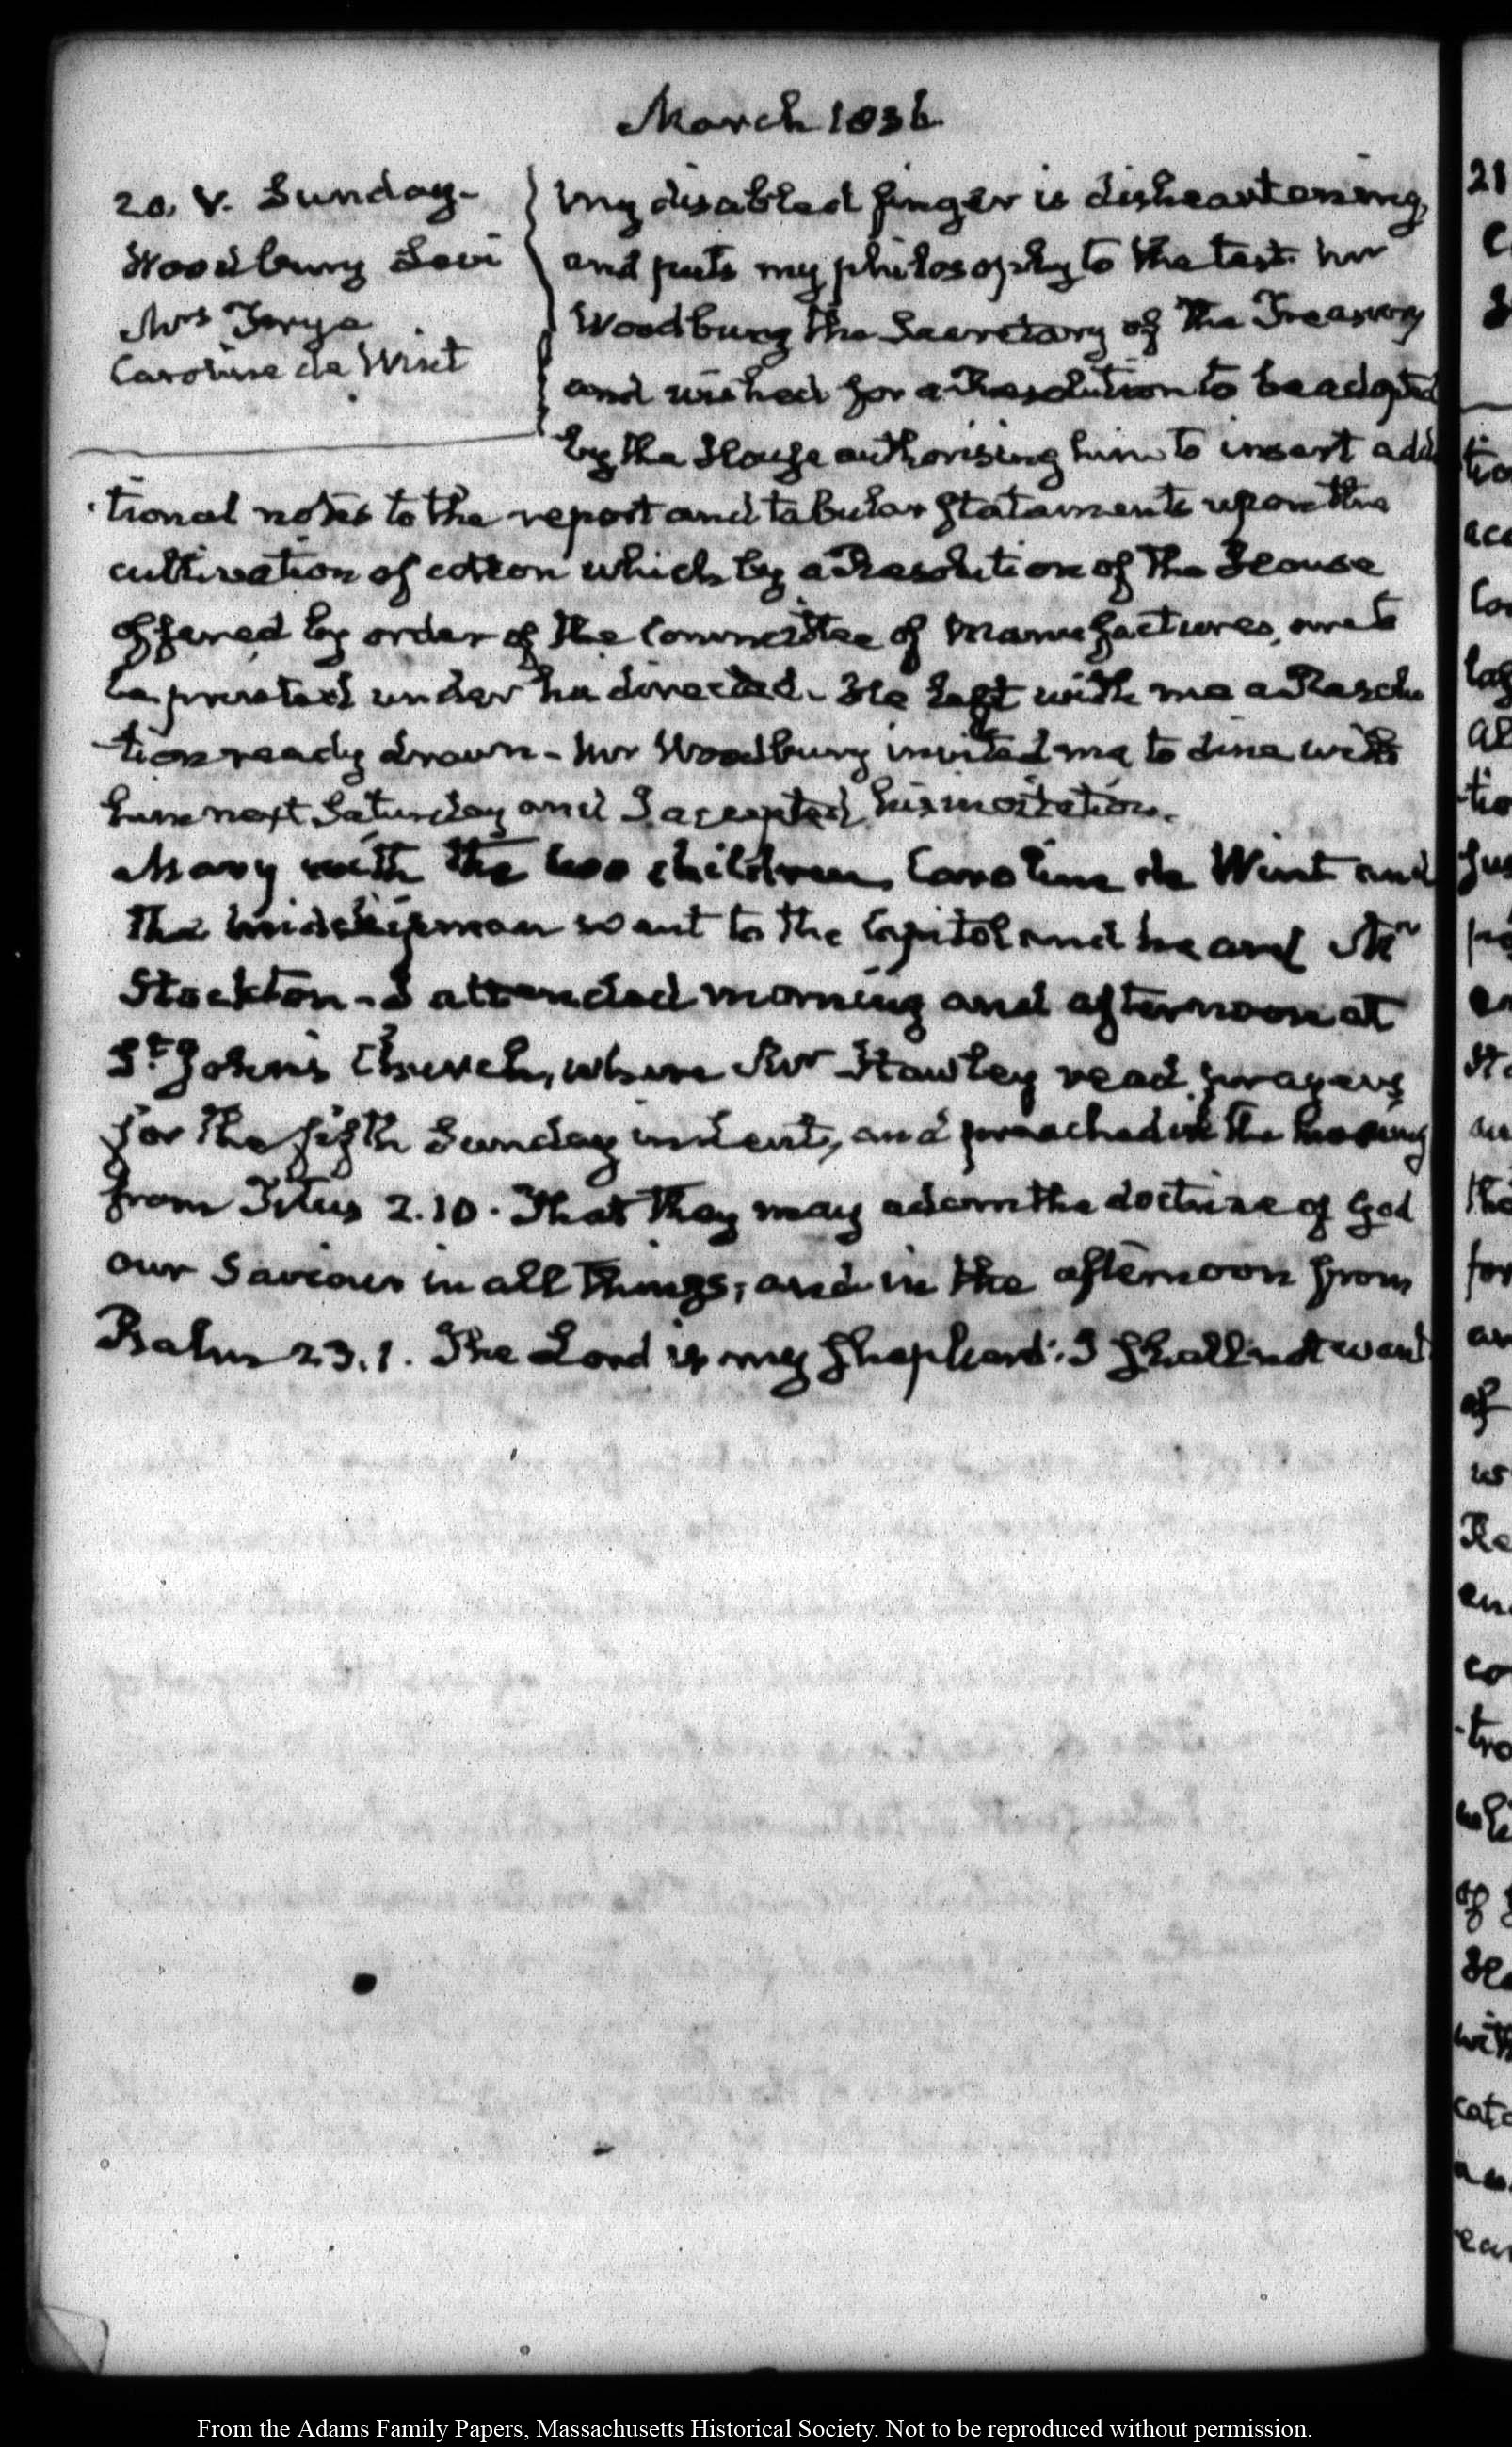 March 1836.
20. V. Sunday-
Woodbury Levi
Mrs Frye
Caroline de Wint
My disabled finger is disheartening,
and puts my philosophy to the test. Mr
Woodbury the Secretary of the Treasury
and wished for a Resolution to be adopted
by the House authorising him to insert addi
tional notes to the report and tabular statements upon the
cultivation of cotton which by a Resolution of the House
offered by order of the Committee of Manufactures, are to
be printed under his direction. He left with me a Resolu
tion ready drawn - Mr Woodbury invited me to dine with
him next Saturday and I accepted his invitation.
Mary with the two children, Caroline de Wint and
the midshipman went to the Capitol and heard Mr
Stockton - I attended morning and afternoon at
St. John's Church, where Mr Hawley read prayers
for the fifth Sunday in Lent, and preached in the morning
from Titus 2.10. That they may adorn the doctrine of God
our Saviour in all things; and in the afternoon from
Psalm 23.1. The Lord is my Shepherd: I shall not want.
21
From the Adams Family Papers, Massachusetts Historical Society. Not to be reproduced without permission.